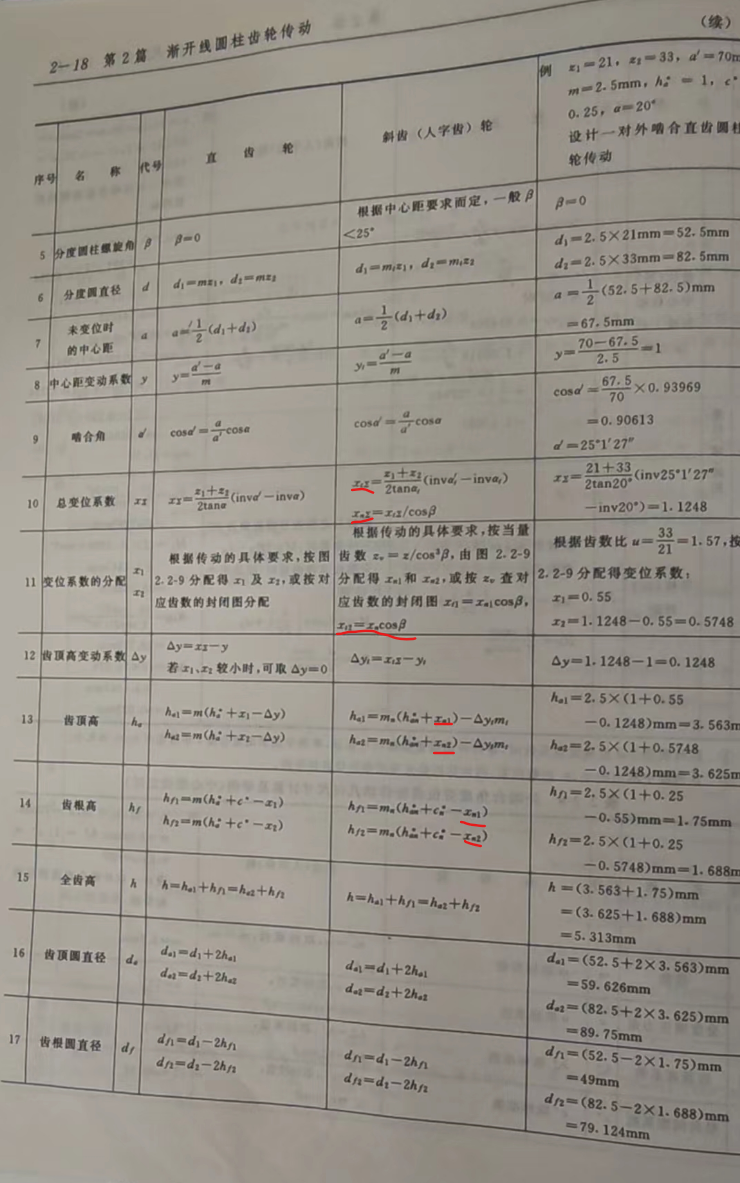 2—18 第2篇 渐开线圆柱齿轮传动
(续)
序号 名 称 代号 直 齿 轮 斜齿(人字齿)轮
例 z₁=21, z₂=33, a′=70m
m=2.5mm, hₐ* = 1, c*
0.25, α=20°
设计一对外啮合直齿圆柱
轮传动
5 分度圆柱螺旋角 β β=0
根据中心距要求而定,一般β
<25°
β=0
6 分度圆直径 d d₁=mz₁, d₂=mz₂
d₁=mₜz₁, d₂=mₜz₂
d₁=2.5×21mm=52.5mm
d₂=2.5×33mm=82.5mm
7 未变位时
的中心距
a a=1/2(d₁+d₂)
a=1/2(d₁+d₂)
a=1/2(52.5+82.5)mm
=67.5mm
8 中心距变动系数 y y=(a′−a)/m
yₜ=(a′−a)/m
y=(70−67.5)/2.5=1
9 啮合角 α′ cosα′=a/a′cosα
cosα′=a/a′cosα
cosα′=67.5/70×0.93969
=0.90613
α′=25°1′27″
10 总变位系数 xΣ xΣ=(z₁+z₂)/2tanα(invα′−invα)
xₜΣ=(z₁+z₂)/2tanαₜ(invαₜ′−invαₜ)
xₙΣ=xₜΣ/cosβ
xΣ=(21+33)/2tan20°(inv25°1′27″
−inv20°)=1.1248
11 变位系数的分配 x₁
x₂
根据传动的具体要求,按图
2.2-9分配得x₁及x₂,或按对
应齿数的封闭图分配
根据传动的具体要求,按当量
齿数zᵥ=z/cos³β,由图2.2-9
分配得xₙ₁和xₙ₂,或按zᵥ查对
应齿数的封闭图xₜ₁=xₙ₁cosβ,
xₜ₂=xₙcosβ
根据齿数比u=33/21=1.57,按
2.2-9分配得变位系数:
x₁=0.55
x₂=1.1248−0.55=0.5748
12 齿顶高变动系数 Δy Δy=xΣ−y
若x₁、x₂较小时,可取Δy=0
Δyₜ=xₜΣ−yₜ
Δy=1.1248−1=0.1248
13 齿顶高 hₐ
hₐ₁=m(hₐ*+x₁−Δy)
hₐ₂=m(hₐ*+x₂−Δy)
hₐ₁=mₙ(hₐₙ*+xₙ₁)−Δyₜmₜ
hₐ₂=mₙ(hₐₙ*+xₙ₂)−Δyₜmₜ
hₐ₁=2.5×(1+0.55
−0.1248)mm=3.563m
hₐ₂=2.5×(1+0.5748
−0.1248)mm=3.625m
14 齿根高 h_f
h_f₁=m(hₐ*+c*−x₁)
h_f₂=m(hₐ*+c*−x₂)
h_f₁=mₙ(hₐₙ*+cₙ*−xₙ₁)
h_f₂=mₙ(hₐₙ*+cₙ*−xₙ₂)
h_f₁=2.5×(1+0.25
−0.55)mm=1.75mm
h_f₂=2.5×(1+0.25
−0.5748)mm=1.688m
15 全齿高 h h=hₐ₁+h_f₁=hₐ₂+h_f₂
h=hₐ₁+h_f₁=hₐ₂+h_f₂
h=(3.563+1.75)mm
=(3.625+1.688)mm
=5.313mm
16 齿顶圆直径 dₐ
dₐ₁=d₁+2hₐ₁
dₐ₂=d₂+2hₐ₂
dₐ₁=d₁+2hₐ₁
dₐ₂=d₂+2hₐ₂
dₐ₁=(52.5+2×3.563)mm
=59.626mm
dₐ₂=(82.5+2×3.625)mm
=89.75mm
17 齿根圆直径 d_f
d_f₁=d₁−2h_f₁
d_f₂=d₂−2h_f₂
d_f₁=d₁−2h_f₁
d_f₂=d₂−2h_f₂
d_f₁=(52.5−2×1.75)mm
=49mm
d_f₂=(82.5−2×1.688)mm
=79.124mm